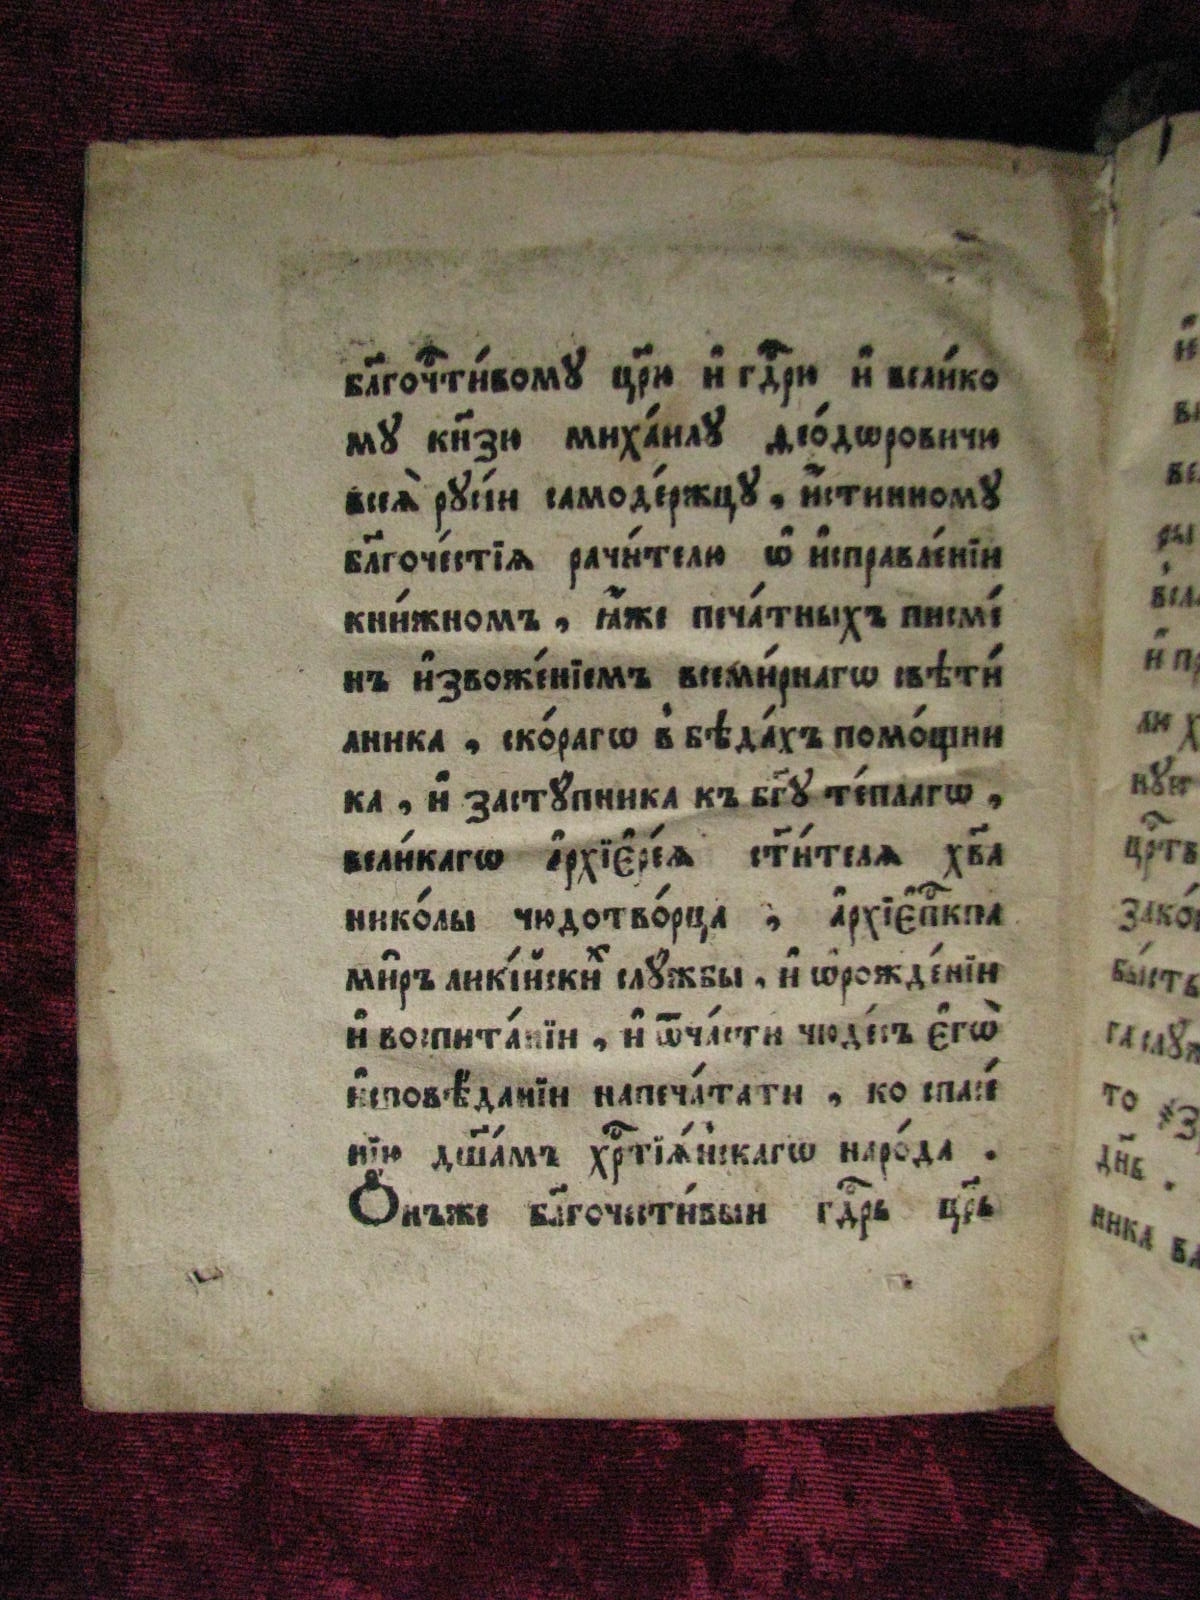 бл҃гоч҇ти́вому цр҃ю и҆ гд҇рю и҆ вели́ко
му кн҃зю миха́илу ѳео́дѡровичю
всеѧ̀ русі́и самоде́ржцу, и҆́стинному
бл҃гоче́стїѧ рачи́телю ѡ҆ и҆справле́нїи
кни́жномъ, ꙗ҆́же печа́тныхъ писме́
нъ и҆зѡбраже́нїемъ всеми́рнагѡ свѣти́
лника, ско́рагѡ в҆ бѣда́хъ помо́щни
ка, и҆ засту́пника къ бг҃у те́плагѡ,
вели́кагѡ а҆рхїє҆ре́ѧ ст҃и́телѧ хв҃а
нико́лы чюдотво́рца, а҆рхїє҆п҇кпа
ми҆ръ ликі́йских слу́жбы, и҆ ѡ҆рожде́нїи
и҆ воспита́нїи, и҆ ѿча́сти чюде́съ є҆гѡ̀
и҆сповѣ́данїи напеча́тати, ко спасе́
нїю дш҃а́мъ хр҇тїѧ́нскагѡ наро́да.
Ѻ҆́нъже бл҃гочести́выи гд҇рь цр҃ь
и҆
то
дн҃ь.